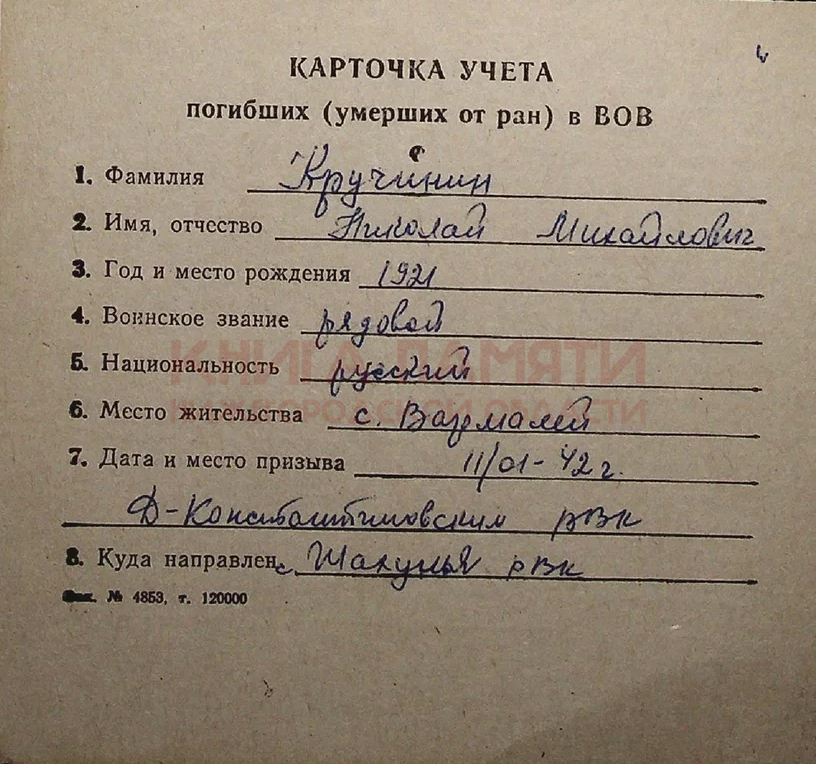 КАРТОЧКА УЧЕТА
погибших (умерших от ран) в ВОВ
1. Фамилия Кручинин
2. Имя, отчество Николай Михайлович
3. Год и место рождения 1921
4. Воинское звание рядовой
5. Национальность русский
КНИГА ПАМЯТИ
НИЖЕГОРОДСКОЙ ОБЛАСТИ
6. Место жительства с. Вазьмалей
7. Дата и место призыва 11/01-42 г.
Д-Константиновским рвк
8. Куда направлен с. Шахунья рвк
№ 4853, т. 120000